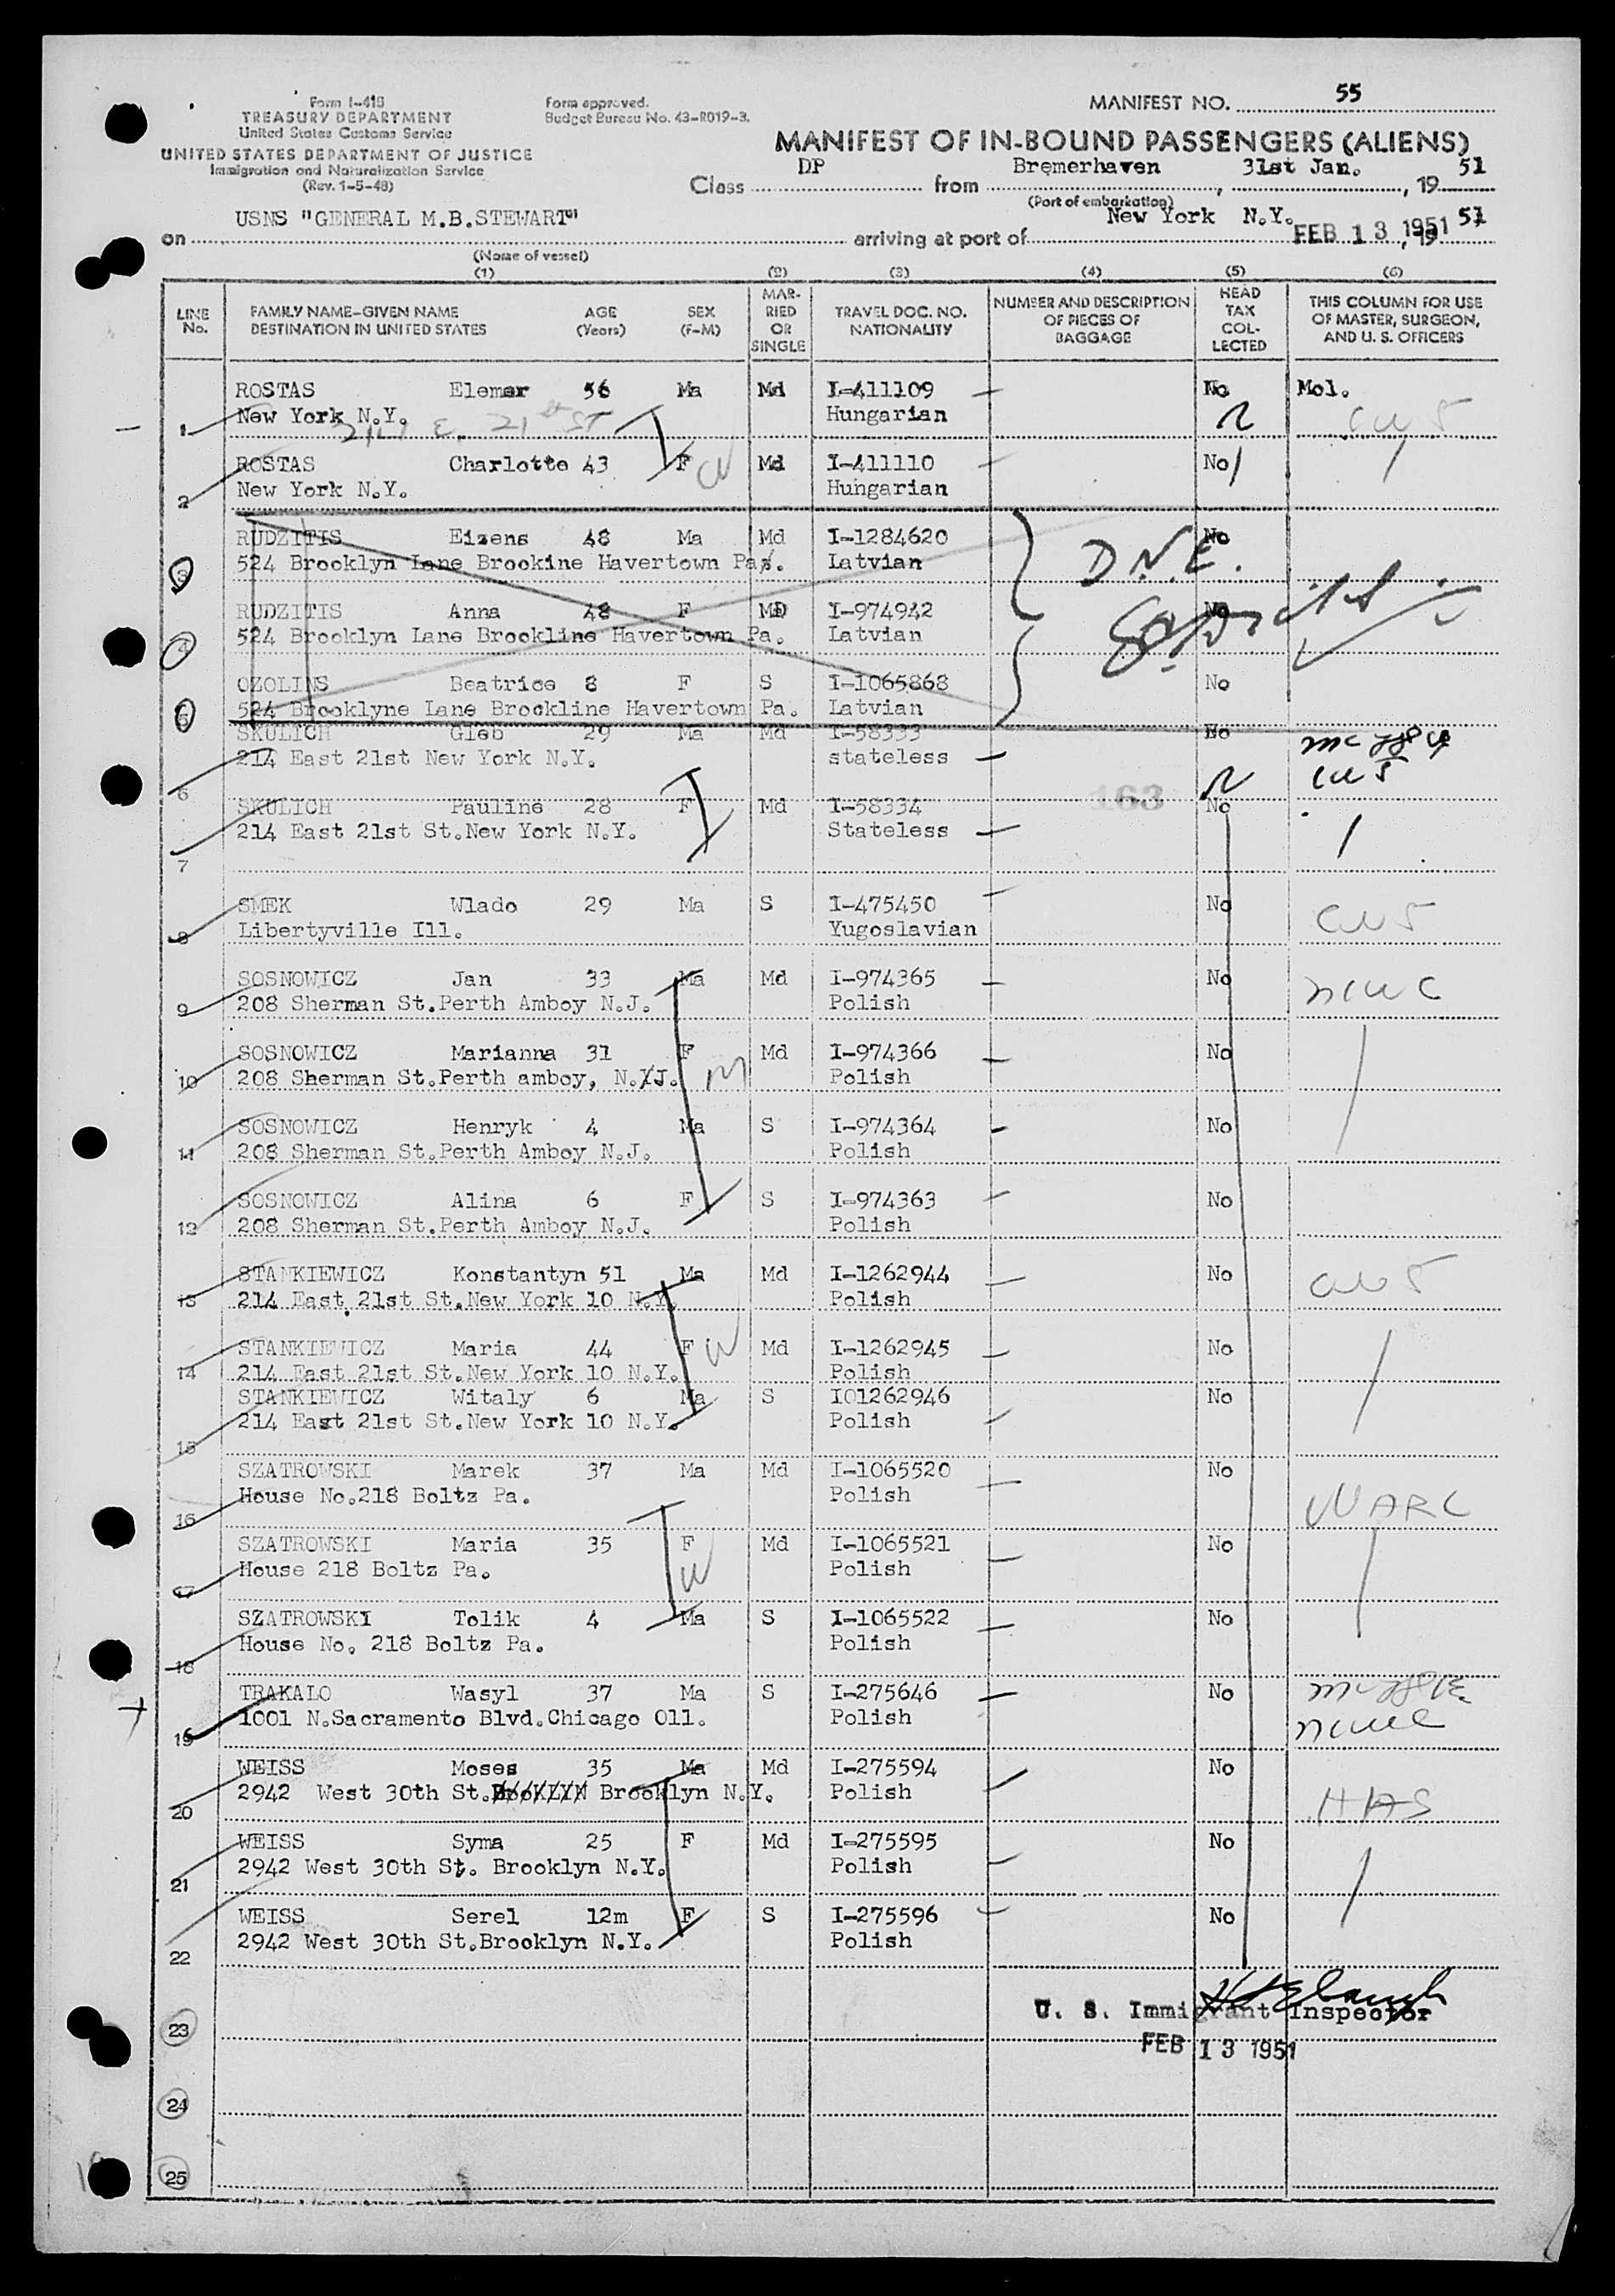 Form I-418
TREASURY DEPARTMENT
United States Customs Service
UNITED STATES DEPARTMENT OF JUSTICE
Immigration and Naturalization Service
(Rev. 1-5-48)
Form approved.
Budget Bureau No. 43-R019-3.
MANIFEST NO. 55
MANIFEST OF IN-BOUND PASSENGERS (ALIENS)
Class DP from Bremerhaven, 31st Jan., 19 51
(Port of embarkation)
on USNS "GENERAL M.B.STEWART" arriving at port of New York N.Y. FEB 13 1951, 19 51
(Name of vessel)
(1) (2) (3) (4) (5) (6)
LINE No. FAMILY NAME-GIVEN NAME DESTINATION IN UNITED STATES AGE (Years) SEX (F-M) MARRIED OR SINGLE TRAVEL DOC. NO. NATIONALITY NUMBER AND DESCRIPTION OF PIECES OF BAGGAGE HEAD TAX COLLECTED THIS COLUMN FOR USE OF MASTER, SURGEON, AND U. S. OFFICERS
ROSTAS Elemer 56 Ma Md I-411109 No Mol.
1 New York N.Y. Hungarian
214 E. 21st ST
ROSTAS Charlotte 43 F Md I-411110 No
2 New York N.Y. Hungarian
RUDZITIS Eizens 48 Ma Md I-1284620 No
3 524 Brooklyn Lane Brookine Havertown Pa. Latvian
D.N.E.
RUDZITIS Anna 48 F MD I-974942 No
4 524 Brooklyn Lane Brockline Havertown Pa. Latvian
OZOLINS Beatrice 8 F S I-1065868 No
5 524 Brooklyne Lane Brockline Havertown Pa. Latvian
SKULICH Gleb 29 Ma Md I-58333 No
6 214 East 21st New York N.Y. stateless
163
SKULICH Pauline 28 F Md I-58334 No
7 214 East 21st St.New York N.Y. Stateless
SMEK Wlado 29 Ma S I-475450 No
8 Libertyville Ill. Yugoslavian
SOSNOWICZ Jan 33 Ma Md I-974365 No
9 208 Sherman St.Perth Amboy N.J. Polish
SOSNOWICZ Marianna 31 F Md I-974366 No
10 208 Sherman St.Perth amboy, N.J. Polish
SOSNOWICZ Henryk 4 Ma S I-974364 No
11 208 Sherman St.Perth Amboy N.J. Polish
SOSNOWICZ Alina 6 F S I-974363 No
12 208 Sherman St.Perth Amboy N.J. Polish
STANKIEWICZ Konstantyn 51 Ma Md I-1262944 No
13 214 East 21st St.New York 10 N.Y. Polish
STANKIEWICZ Maria 44 F Md I-1262945 No
14 214 East 21st St.New York 10 N.Y. Polish
STANKIEWICZ Witaly 6 Ma S I01262946 No
15 214 East 21st St.New York 10 N.Y. Polish
SZATROWSKI Marek 37 Ma Md I-1065520 No
16 House No.218 Boltz Pa. Polish
WARC
SZATROWSKI Maria 35 F Md I-1065521 No
17 House 218 Boltz Pa. Polish
SZATROWSKI Tolik 4 Ma S I-1065522 No
18 House No. 218 Boltz Pa. Polish
TRAKALO Wasyl 37 Ma S I-275646 No
19 1001 N.Sacramento Blvd.Chicago Oll. Polish
WEISS Moses 35 Ma Md I-275594 No
20 2942 West 30th St. BrooKLYN Brooklyn N.Y. Polish
HAS
WEISS Syma 25 F Md I-275595 No
21 2942 West 30th St. Brooklyn N.Y. Polish
WEISS Serel 12m F S I-275596 No
22 2942 West 30th St.Brooklyn N.Y. Polish
U. S. Immigrant Inspector
23
FEB 13 1951
24
25